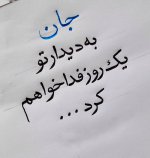 جان
به دیدار تو
یک روز فدا خواهم
کرد...